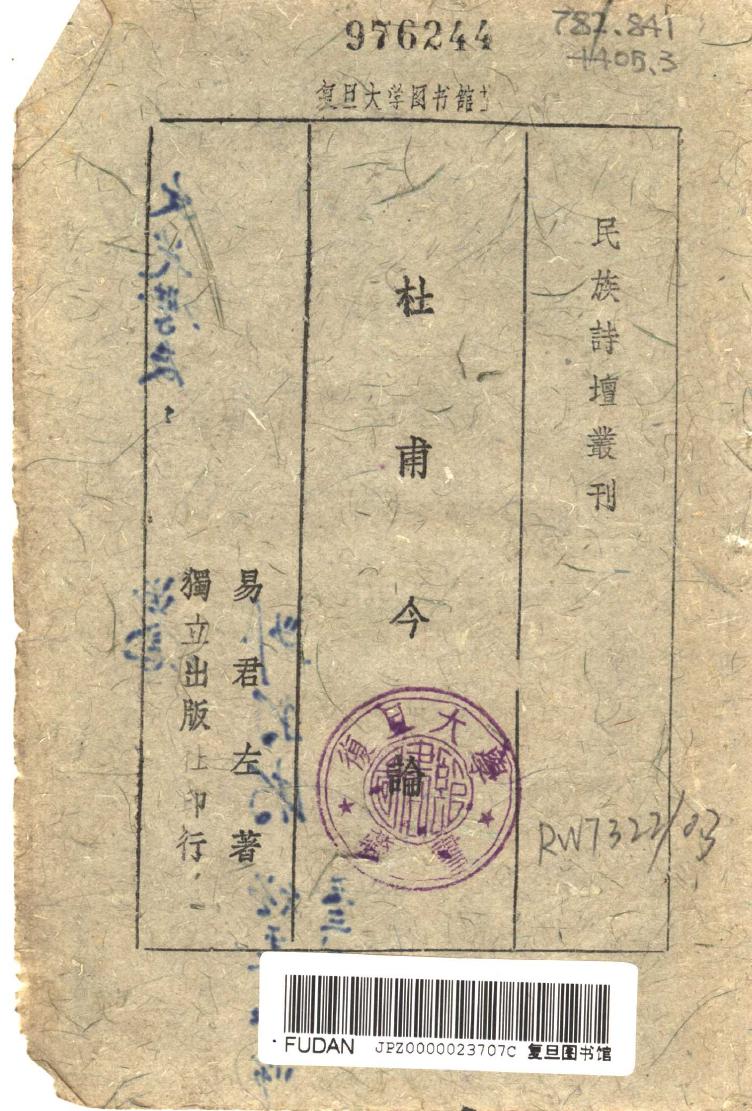 976244
782.841
4405.3
复旦大学图书馆
民族詩壇叢刊
杜甫今論
易君左著
獨立出版社印行
復旦大學
圖書館
藏書
RW7322/03
FUDAN JPZ0000023707C 复旦图书馆